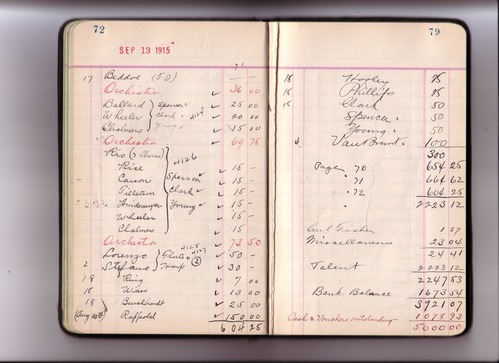 72
SEP 13 1915
17 Beddoe (50) — —
Orchestra ✓ 36 00
Ballard Spencer ✓ 25 00
Wheeler Clark ✓ 20 00
Chalmers Young ✓ 15 00
Orchestra ✓ 69 75
Rio (& Chorus) 4126
Rise ✓ 15 -
Carson Spencer ✓ 15 -
Tillotson Clark ✓ 15 -
Young ✓ 15 -
Wheeler ✓ 15 -
Chalmers ✓ 15 -
Orchestra ✓ 73 50
Lorenzo ✓ 50 -
2 Stefano ✓ 30 -
18 King ✓ 7 00
16 Wiess ✓ 13 00
18 ✓ 25 00
(Aug 20th) Raffold ✓ 150 00
604 25
79
18 Hooley 75
18 Phillips 75
18 Clark 50
Spencer 50
Young 50
Van Brunt 100
300
Page 70 654 25
" 71 664 62
" 72 604 25
2223 12
Carl Fisher 1 37
Miscellaneous 23 04
24 41
Talent 2223 12
2247 53
Bank Balance 1673 54
3921 07
Cash & Vouchers outstanding 1078 93
5000 00